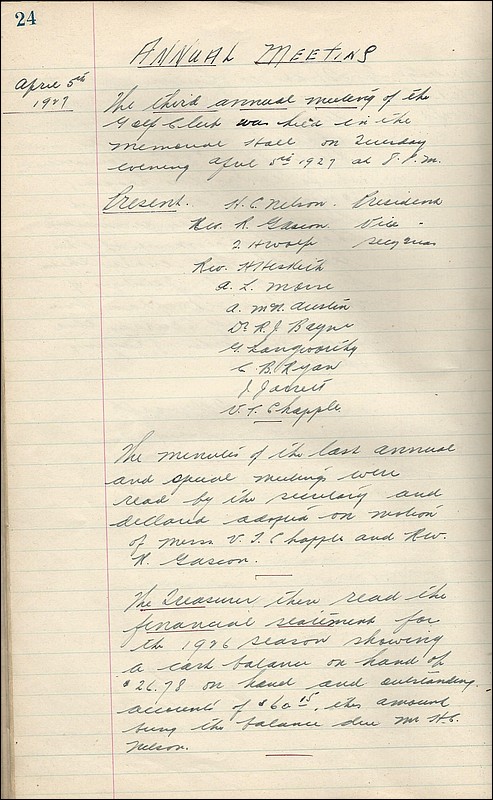 24
ANNUAL MEETING
April 5th
1927
The third annual meeting of the
Golf Club was held in the
Memorial Hall on Tuesday
evening April 5th 1927 at 8 P.m.
Present. H. C. Nelson. President
Rev. R. Gascon. Vice -
J. H Woolf Secy Treas
Rev. H Hesketh
A. L. Morse
A. McN. Austin
Dr R. J. Bayne
G. Langworthy
C. B. Ryan
J. Jarrett
V. T. Chapple
The minutes of the last annual
and special meetings were
read by the secretary and
declared adopted on motion
of Messrs V. T. Chapple and Rev.
R. Gascon.
The Treasurer then read the
financial statement for
the 1926 season showing
a cash balance on hand of
$26.78 on hand and outstanding
accounts of $60 15, this amount
being the balance due Mr H. C.
Nelson.